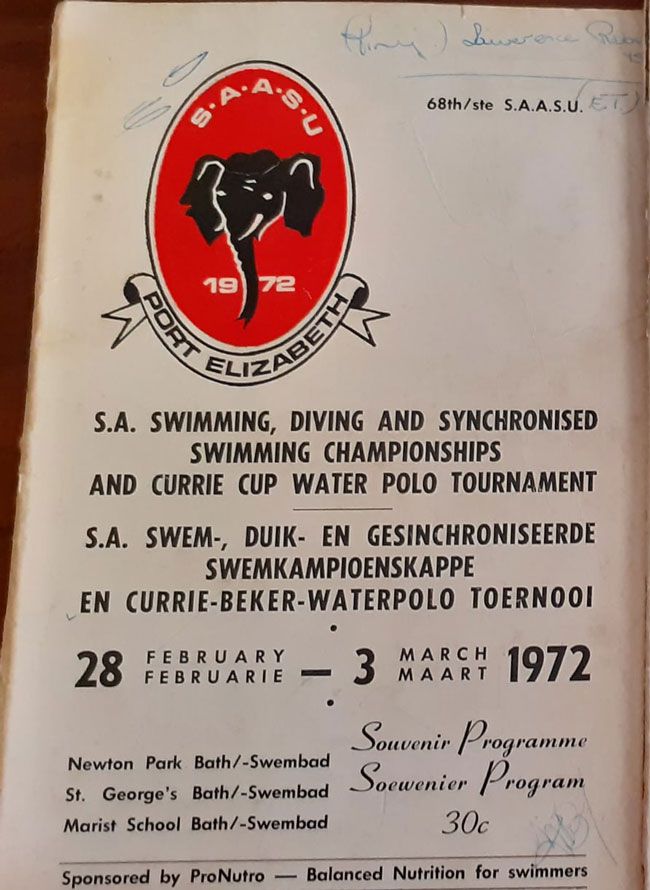 Lawerence
68th/ste S.A.A.S.U. (E.T.)
S·A·A·S·U
1972
PORT ELIZABETH
S.A. SWIMMING, DIVING AND SYNCHRONISED
SWIMMING CHAMPIONSHIPS
AND CURRIE CUP WATER POLO TOURNAMENT
S.A. SWEM-, DUIK- EN GESINCHRONISEERDE
SWEMKAMPIOENSKAPPE
EN CURRIE-BEKER-WATERPOLO TOERNOOI
28 FEBRUARY FEBRUARIE — 3 MARCH MAART 1972
Souvenir Programme
Newton Park Bath/-Swembad
Soewenier Program
St. George's Bath/-Swembad
30c
Marist School Bath/-Swembad
Sponsored by ProNutro — Balanced Nutrition for swimmers